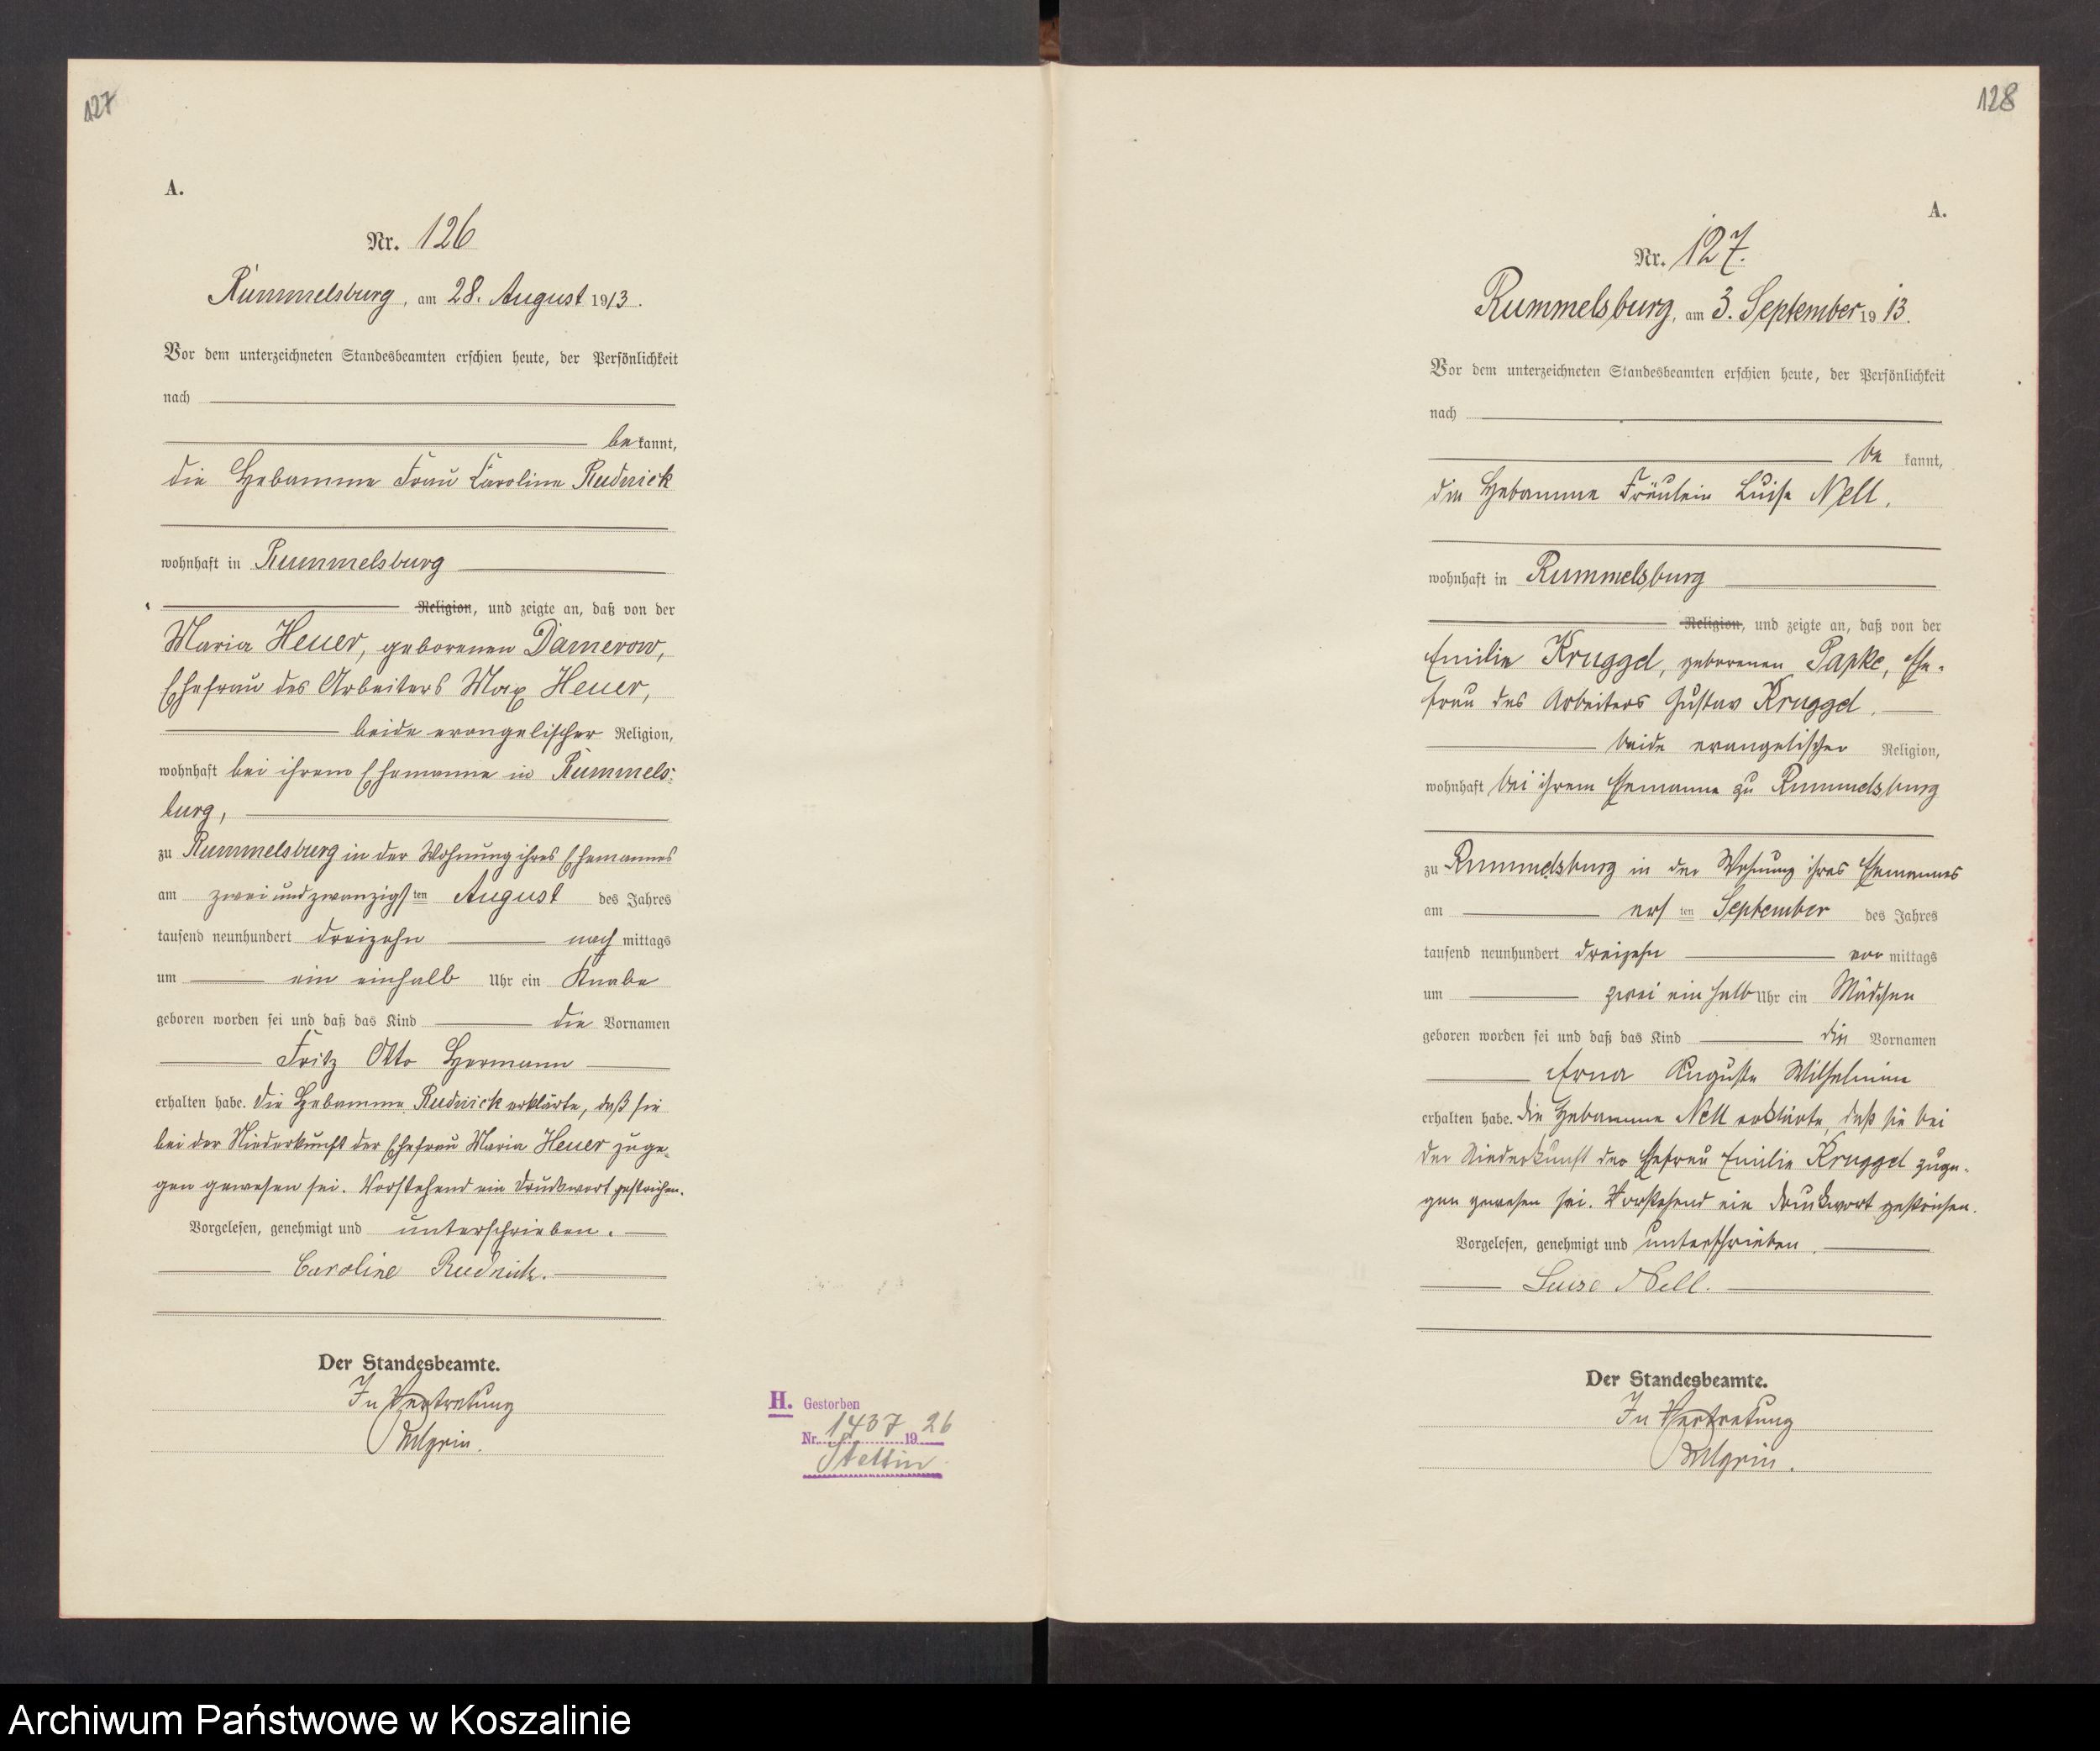 127
A.
Nr. 126
Rummelsburg, am 28. August 1913.
Vor dem unterzeichneten Standesbeamten erschien heute, der Persönlichkeit
nach
be kannt,
die Hebamme Frau Caroline Rudnick
wohnhaft in Rummelsburg
Religion, und zeigte an, daß von der
Maria Heuer, geborenen Damerow,
Ehefrau des Arbeiters Max Heuer,
beide evangelischer Religion,
wohnhaft bei ihrem Ehemanne in Rummels-
burg,
zu Rummelsburg in der Wohnung ihres Ehemannes
am zwei und zwanzigsten August des Jahres
tausend neunhundert dreizehn nach mittags
um ein einhalb Uhr ein Knabe
geboren worden sei und daß das Kind die Vornamen
Fritz Otto Hermann
erhalten habe. Die Hebamme Rudnick erklärte, daß sie
bei der Niederkunft der Ehefrau Maria Heuer zuge-
gen gewesen sei. Vorstehend ein Druckwort gestrichen.
Vorgelesen, genehmigt und unterschrieben.
Caroline Rudnick.
Der Standesbeamte.
In Vertretung
H. Gestorben
Nr. 1437 1926
Stettin
128
A.
Nr. 127.
Rummelsburg, am 3. September 1913.
Vor dem unterzeichneten Standesbeamten erschien heute, der Persönlichkeit
nach
be kannt,
die Hebamme Fräulein Luise Nell,
wohnhaft in Rummelsburg
Religion, und zeigte an, daß von der
Emilie Kruggel, geborenen Papke, Ehe-
frau des Arbeiters Gustav Kruggel,
beide evangelischer Religion,
wohnhaft bei ihrem Ehemanne zu Rummelsburg
zu Rummelsburg in der Wohnung ihres Ehemannes
am ersten September des Jahres
tausend neunhundert dreizehn vor mittags
um zwei ein halb Uhr ein Mädchen
geboren worden sei und daß das Kind die Vornamen
Erna Auguste Wilhelmine
erhalten habe. Die Hebamme Nell erklärte, daß sie bei
der Niederkunft der Ehefrau Emilie Kruggel zuge-
gen gewesen sei. Vorstehend ein Druckwort gestrichen.
Vorgelesen, genehmigt und unterschrieben.
Luise Nell.
Der Standesbeamte.
In Vertretung
Archiwum Państwowe w Koszalinie